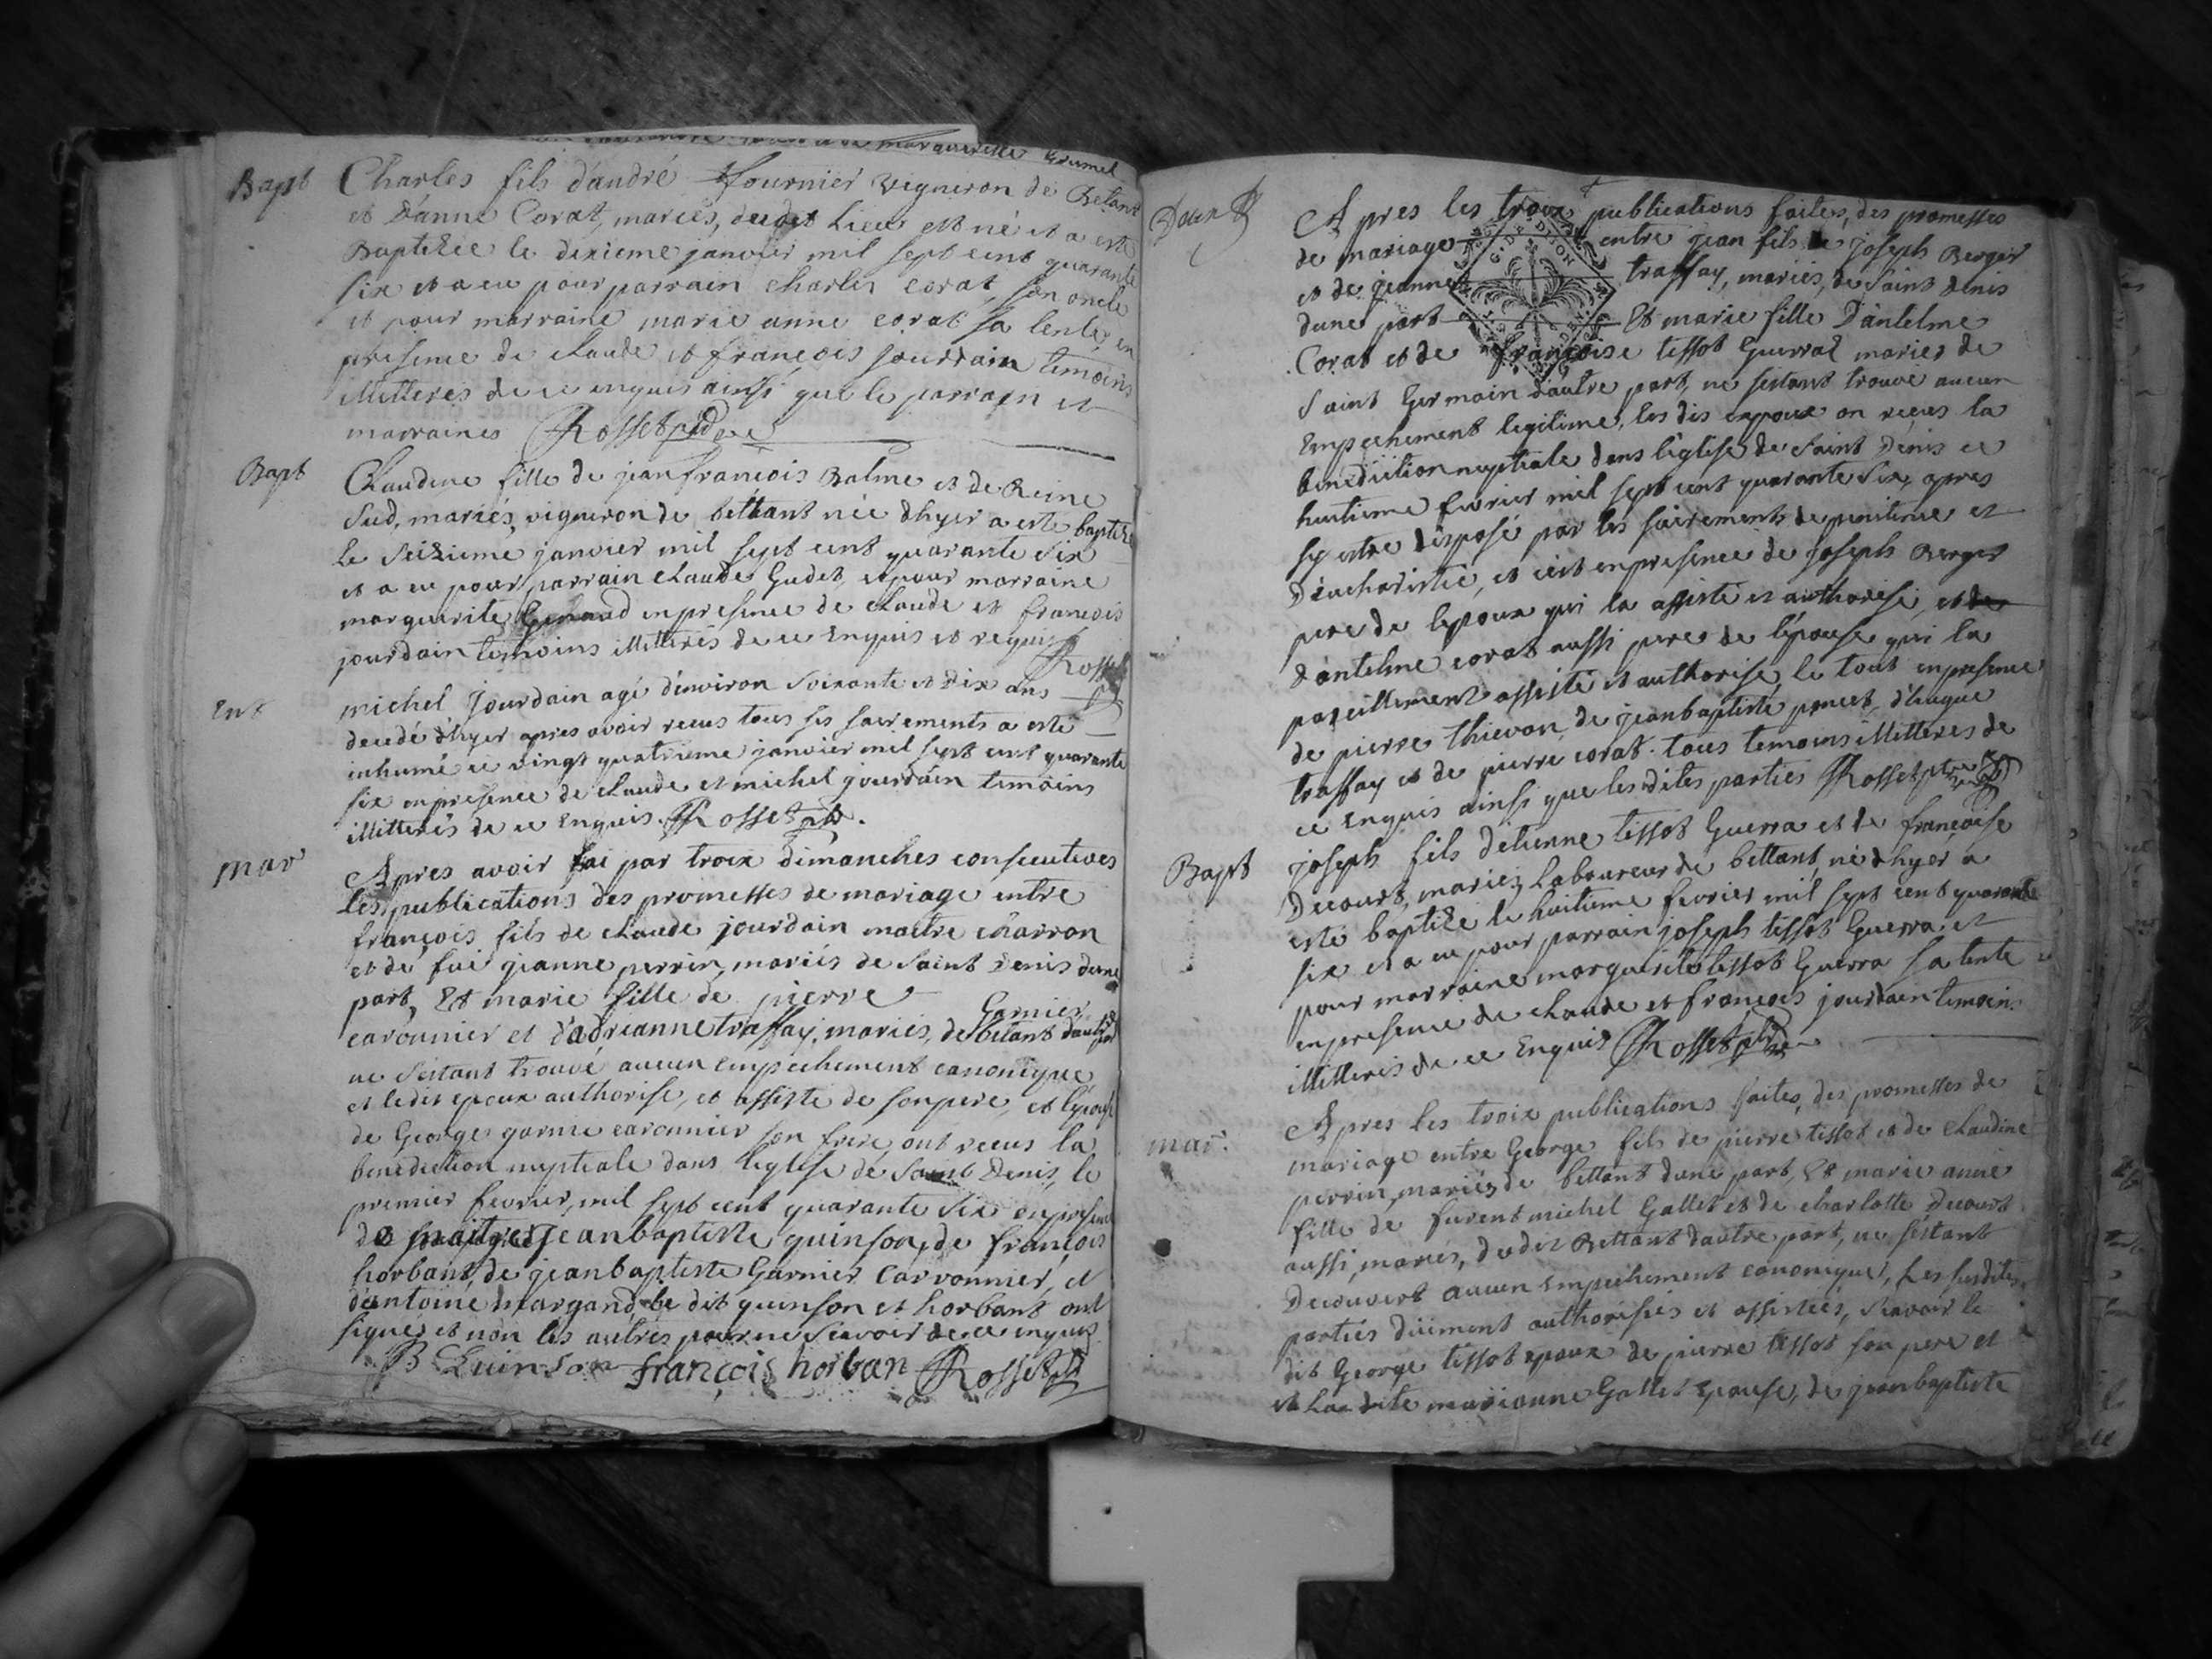 marguerite Grumel
Bapt
Charles fils d'andré fournier vigneron de Betant
et D'anne Corat, mariés, dudit Lieu est né et a esté
Baptizée le dixieme janvier mil sept cent quarante
six et a eu pour parrain charles corat, son oncle
et pour marraine marie anne corat sa tente, en
presence de claude et françois jourdain temoins
illitteres de ce enquis ainsi que le parrain et
marraines Rosset
Bapt
Claudine fille de jean francois Balme et de Reine
Sud, mariés, vigneron de bettant née d'hyer a este baptizé
le Seizieme janvier mil sept cent quarante six
et a eu pour parrain claude Gudet, et pour marraine
marguerite en presence de claude et francois
jourdain temoins illitterés de ce enquis et requis
Rosset
Ent
michel Jourdain agé d'environ soixante et dix ans
decedé d'hyer apres avoir recus tous ses sacrements a esté
inhumé ce vingt quatrieme janvier mil sept cent quarante
six en presence de claude et michel jourdain temoins
illitterés de ce Enquis. Rosset
mar
Apres avoir fai par troix dimanches consecutives
les publications des promesses de mariage entre
françois fils de claude jourdain maitre charron
et de fuë jeanne perrin, mariés de saint Denis dune
part, Et marie fille de pierre
Garnier
caronnier et d'adrianne traffay, mariés, de betant d'autre part
ne s'estant trouvé aucun empechement canonique
et ledit epoux authorisé, et assisté de son pere, et l'épouse
de George garnie caronnier son frere, ont recus la
benediction nuptiale dans l'eglise de Saint Denis, le
premier fevrier, mil sept cent quarante six en presence
de maitre jeanbaptiste quinson, de françois
horbant, de jeanbaptiste Garnier Carronnier, et
d'antoine Margand, le dit quinson et horbant ont
signés et non les autres pour ne scavoir de ce enquis
B Quinson françois horban Rosset
Apres les troix publications faites, des promesses
de mariage entre jean fils de joseph Berger
et de jeanne traffay, mariés, de saint denis
dune part Et marie fille D'antelme
Corat et de françoise tissot Guerraz mariés de
Saint Germain d'autre part, ne s'estant trouvé aucun
Empechement legitime, les dis epoux on recus la
benediction nuptiale dans l'eglise de Saint Denis ce
huitieme fevrier mil sept cent quarante six, apres
sy estre disposé par les sacrements de penitence et
D'eucharistie, et ce en presence de Joseph Berger
pere de lepoux qui la assisté et authorisé,
d'antelme corat aussi pere de l'épouse qui la
pareillement assisté et authorisé, le tout en presence
de pierre thievon, de jeanbaptiste poncet, d'hugue
traffay et de pierre corat. tous temoins illitteres de
ce enquis ainsi que les dites parties Rosset
Bapt
joseph fils d'etienne tissot Guerra et de françoise
Decourt, mariez, Laboureur de bettant, né d'hyer a
esté baptizé le huitieme fevrier mil sept cent quarante
six et a eu pour parrain joseph tissot Guerra, et
pour marraine marguerite tissot Guerra sa tente
en presence de claude et francois jourdain temoins
illitterés de ce Enquis Rosset
mar.
Apres les troix publications faites, des promesses de
mariage entre George fils de pierre tissot et de claudine
perrin, mariés de bettant dune part, Et marie anne
fille de furent michel Gallet et de charlotte Decourt
aussi, mariés, dudit Bettant dautre part, ne s'estant
Decouvert aucun Empechement canonique, Les susdites
parties düement authorisées et assistées, scavoir le
dit George tissot epoux de pierre tissot son pere et
et La dite marianne Gallet Epouse, de jeanbaptiste